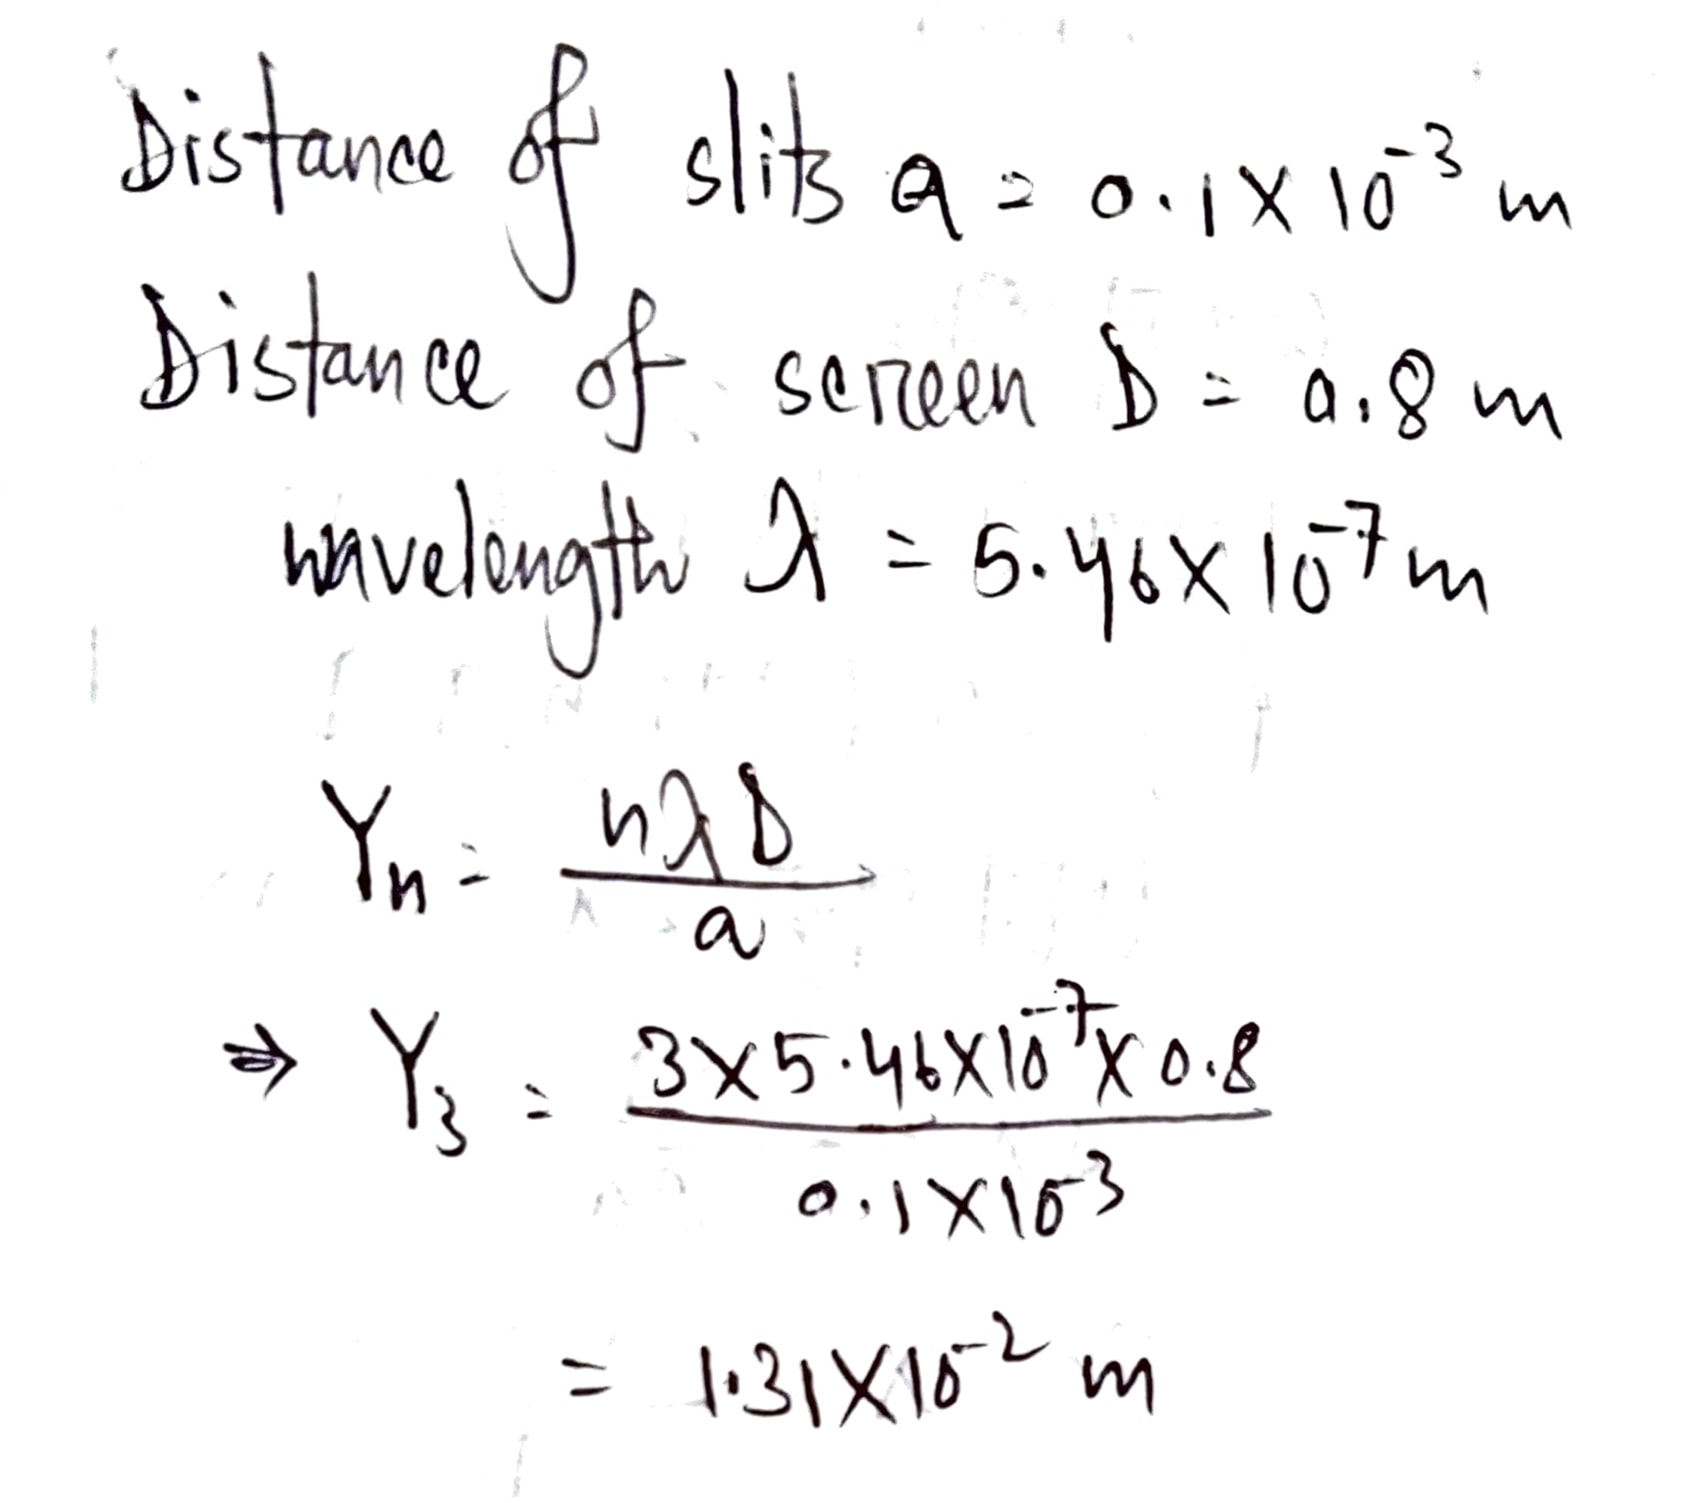 Distance of slits a = 0.1 × 10⁻³ m
Distance of screen D = 0.8 m
wavelength λ = 5.46 × 10⁻⁷ m
Yₙ = nλD / a
⇒ Y₃ = 3 × 5.46 × 10⁻⁷ × 0.8 / 0.1 × 10⁻³
= 1.31 × 10⁻² m